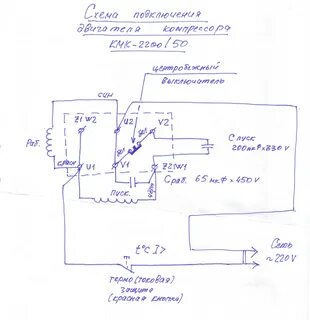 Схема подключения
двигателя компрессора
КМК-2200/50
центробежный
выключатель
син
Z1 W2
U2
V2
Раб.
красн
U1
V1
Z2 W1
С пуск
200 мкФ х 330 V
Сраб. 65 мкФ х 450 V
Пуск.
t°C I>
Сеть
~220V
термо (токовая)
защита
(красная кнопка)